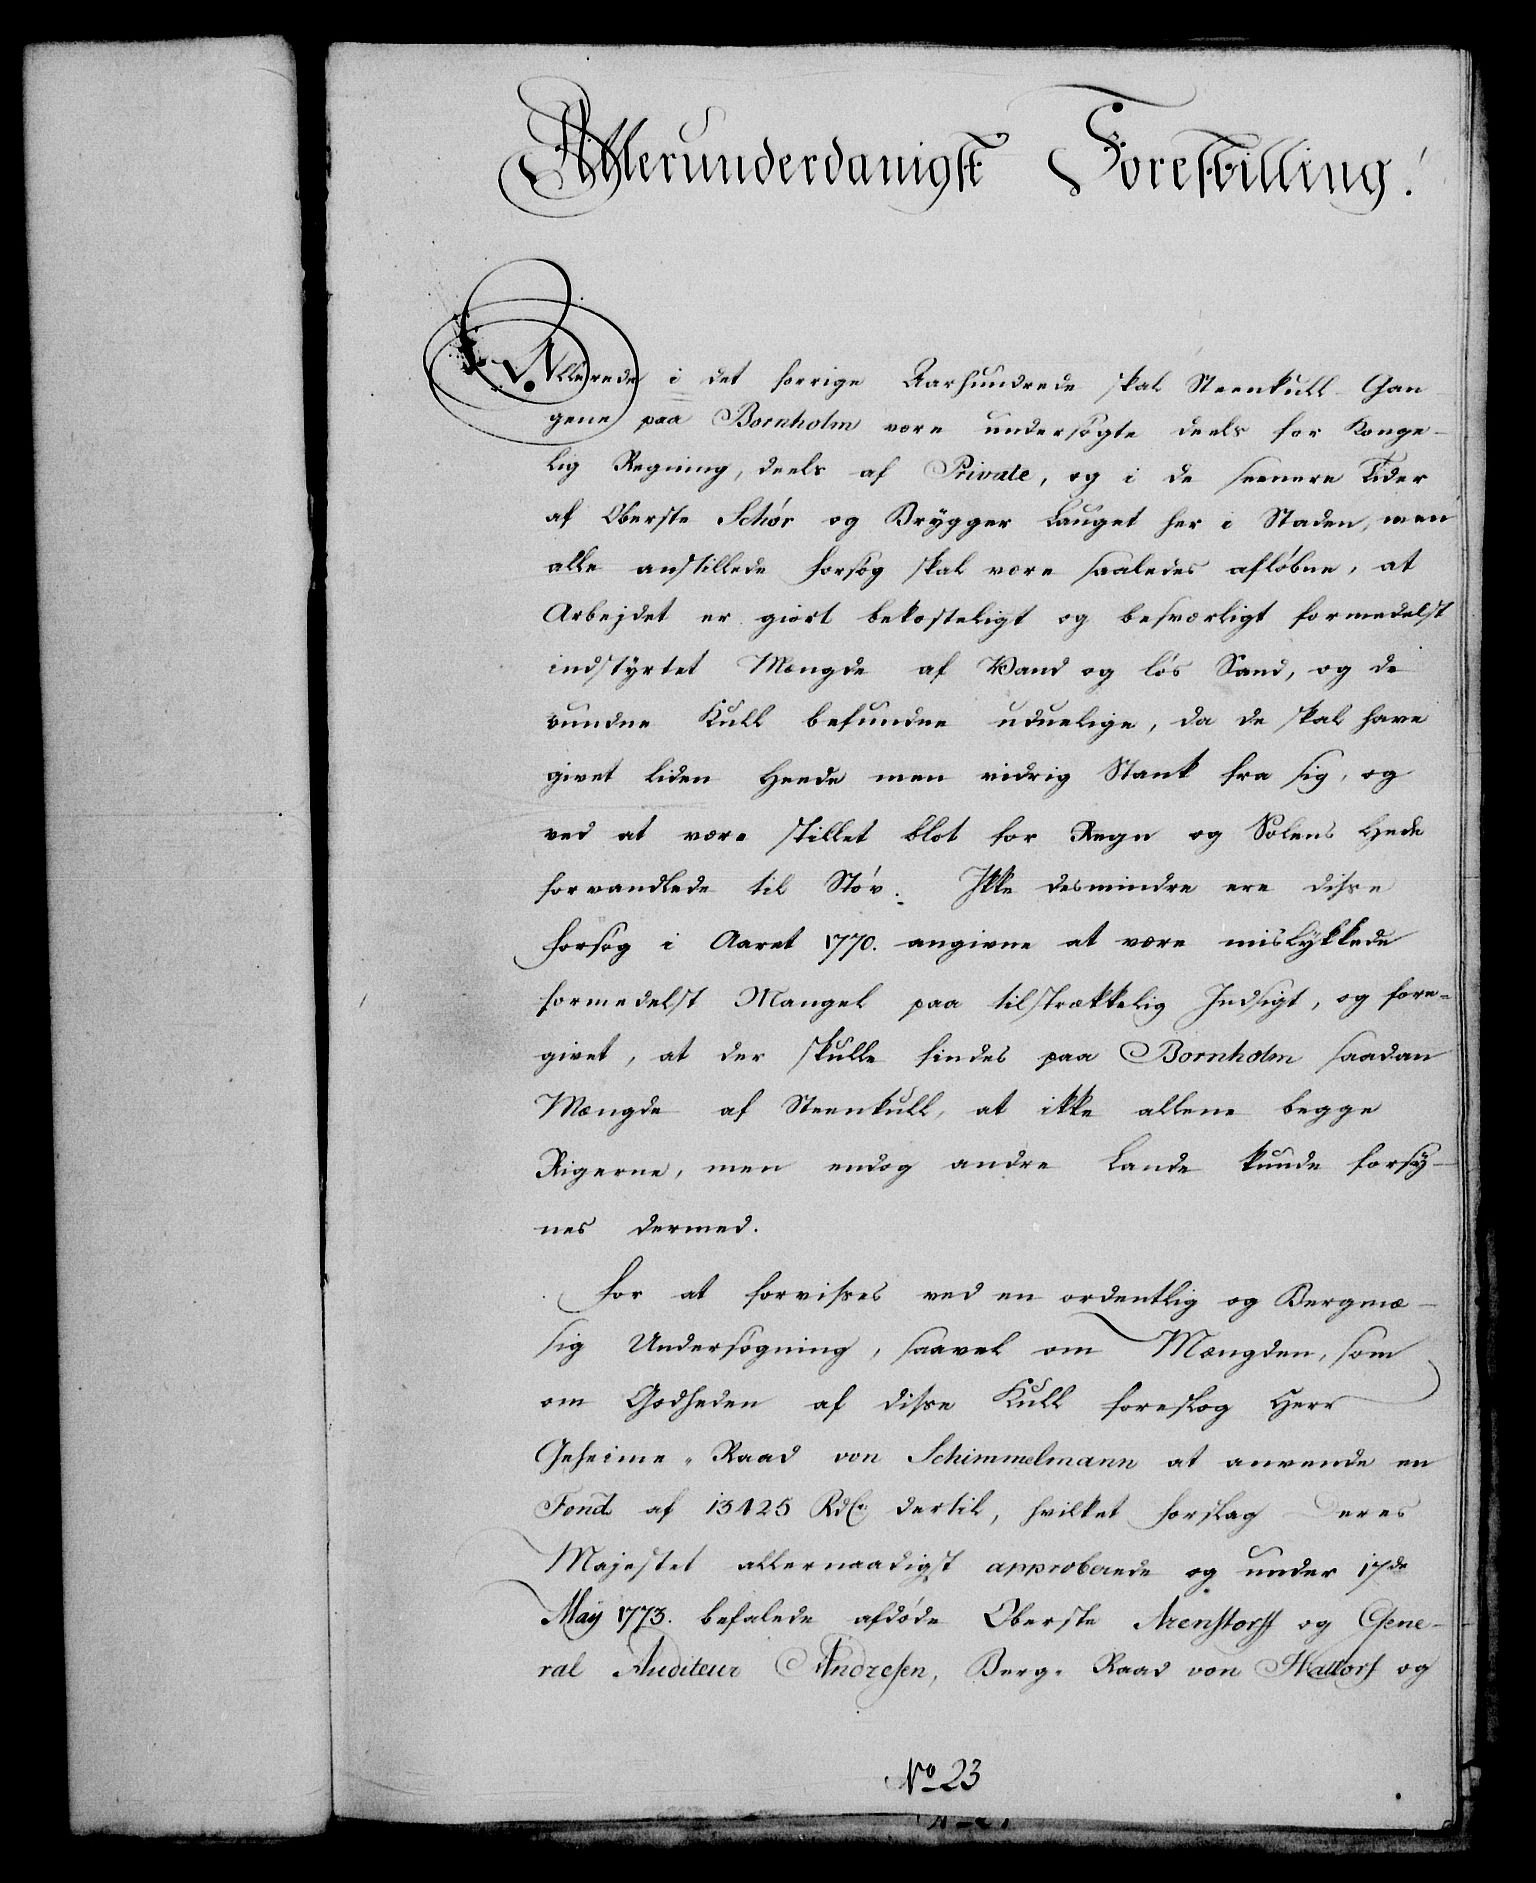 Allerunderdanigst Forestilling!
Allerede i det forrige Aarhundrede skal Steenkull-Gan
gene paa Bornholm være undersøgte deels for Konge-
lig Regning, deels af Private, og i de seenere Tider
af Oberste Schór og Brygger Lauget her i Staden, men
alle anstillede Forsøg skal være saaledes afløbne, at
Arbejdet er giort bekosteligt og besværligt formedelst
indstyrtet Mængde af Vand og løs Sand, og de
vundne Kull befundne uduelige, da de skal have
givet liden Heede men vidrig Stank fra sig, og
ved at være stillet blot for Regn og Solens Hede
forvandlede til Støv. Ikke desmindre ere disse
Forsøg i Aaret 1770. angivne at være mislykkede
formedelst Mangel paa tilstrækkelig Indsigt, og fore-
givet, at der skulle findes paa Bornholm saadan
Mængde af Steenkull, at ikke allene begge
Rigerne, men endog andre Lande kunde forsy-
nes dermed.
For at forvisses ved en ordentlig og Bergmæ-
sig Undersøgning, saavel om Mængden, som
om Godheden af disse Kull foreslog Herr
Geheime-Raad von Schimmelmann at anvende en
Fond af 13425 Rdl. dertil, hvilket Forslag Deres
Majestet allernaadigst approberede og under 17de
Maÿ 1773. befalede afdøde Oberste Arenstorff og Gene-
ral Auditeur Andresen, Berg-Raad von Hattorf og
No 23